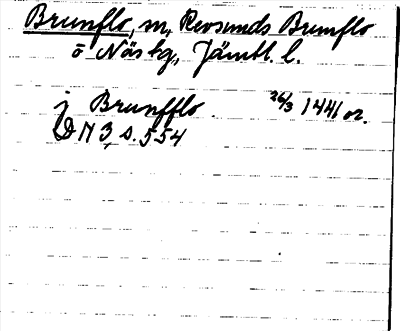 Brunflo, m, Revsunds Brunflo
o Näs tg., Jämtl. l.
j Brunfflo. 26/3 1441 or.
DN 3, s. 554